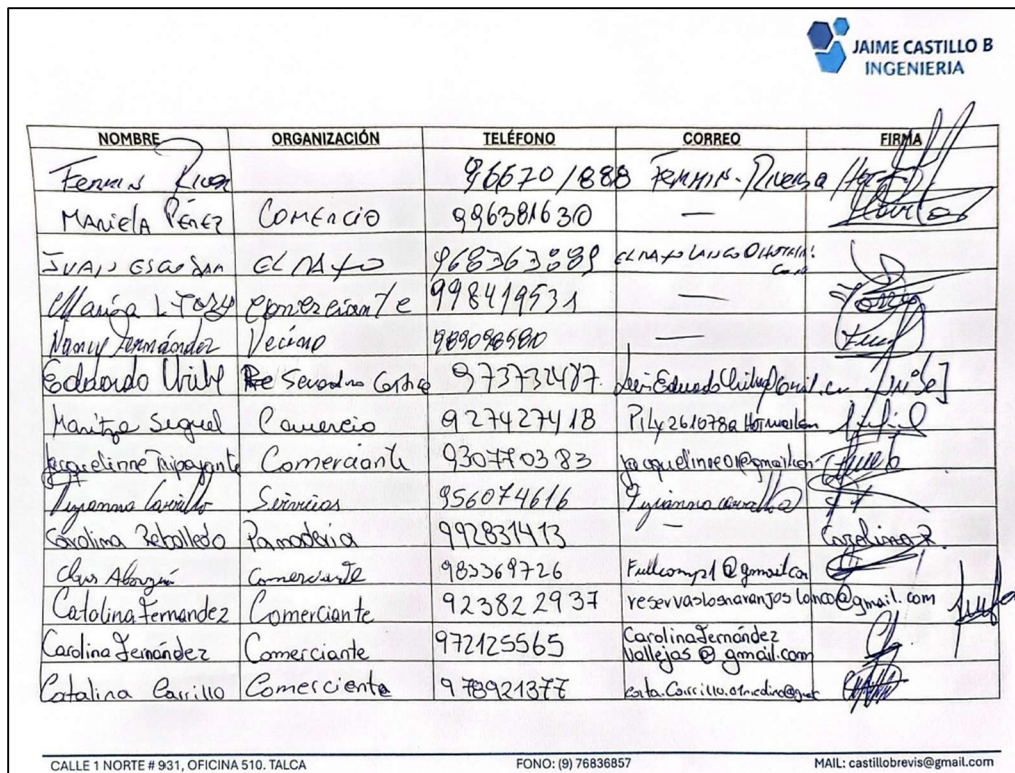 JAIME CASTILLO B
INGENIERIA
NOMBRE ORGANIZACIÓN TELÉFONO CORREO FIRMA
Fermin River 96670 1888 Fermin. Rivera
MARIELA PÉREZ COMERCIO 996381630 —
JUAN ESCOBAR EL ÑATO 968363889
María L. comerciante 998419531
Nancy Fernández Vecino —
Eduardo Uribe 973732487
Maritza Seguel Comercio 927427418
Jacquelinne Tripayante Comerciante 930770383
Carrillo Servicios 956074616
Carolina Rebolledo Panaderia 992831413 — Carolina R
Comerciante 983369726 Fullcomp1@gmail.com
Catalina Fernandez Comerciante 923822937 reservaslosnaranjoslonco@gmail.com
Carolina Fernández Comerciante 972125565 Carolinafernández
vallejos@gmail.com
Catalina Carrillo Comerciente 978921377
CALLE 1 NORTE # 931, OFICINA 510. TALCA FONO: (9) 76836857 MAIL: castillobrevis@gmail.com